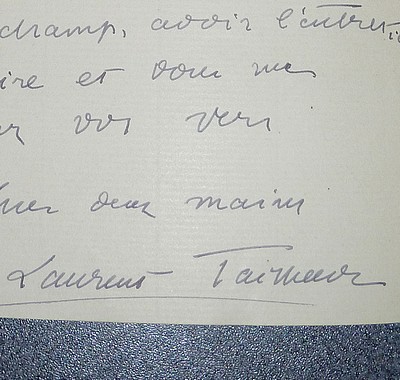 champ, avoir l'entret
ire et dont me
vos vers
deux mains
Laurent Tailhade